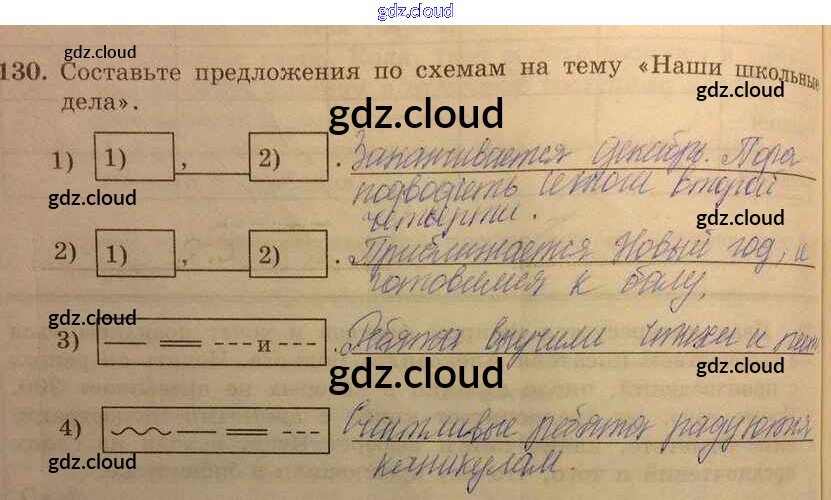 gdz.cloud
gdz.cloud
130. Составьте предложения по схемам на тему «Наши школьные
gdz.cloud
дела».
gdz.cloud
1) 1) , 2) . Заканчивается декабрь. Пора
подводить итоги второй
gdz.cloud
четверти.
gdz.cloud
2) 1) , 2) . Приближается Новый год, и
готовимся к балу.
gdz.cloud
gdz.cloud
3) и . Ребята выучили стихи и
gdz.cloud
gdz.cloud
4) Счастливые ребята радуются
каникулам.
gdz.cloud
gdz.cloud